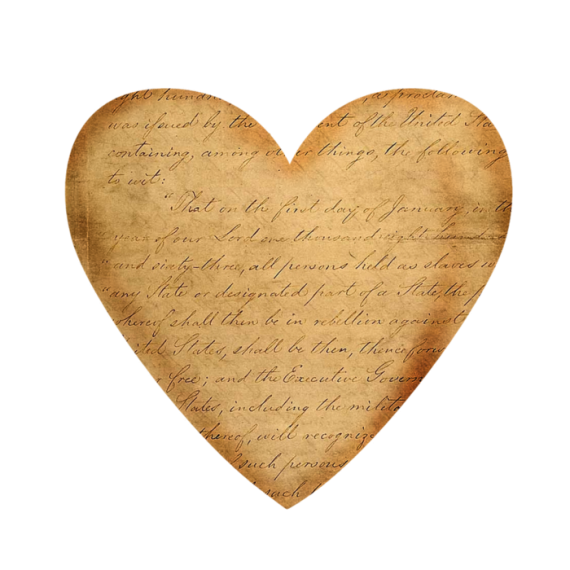 ght hundr , a proclam
was issued by the ent of the United Sta
containing, among other things, the following
to wit:
"That on the first day of January, in th
year of our Lord one thousand eight hundre
"and sixty-three, all persons held as slaves w
"any State or designated part of a State, the p
whereof shall then be in rebellion against
ited States, shall be then, thencefor
r free; and the Executive Govern
States, including the milita
thereof, will recognize
such persons
such